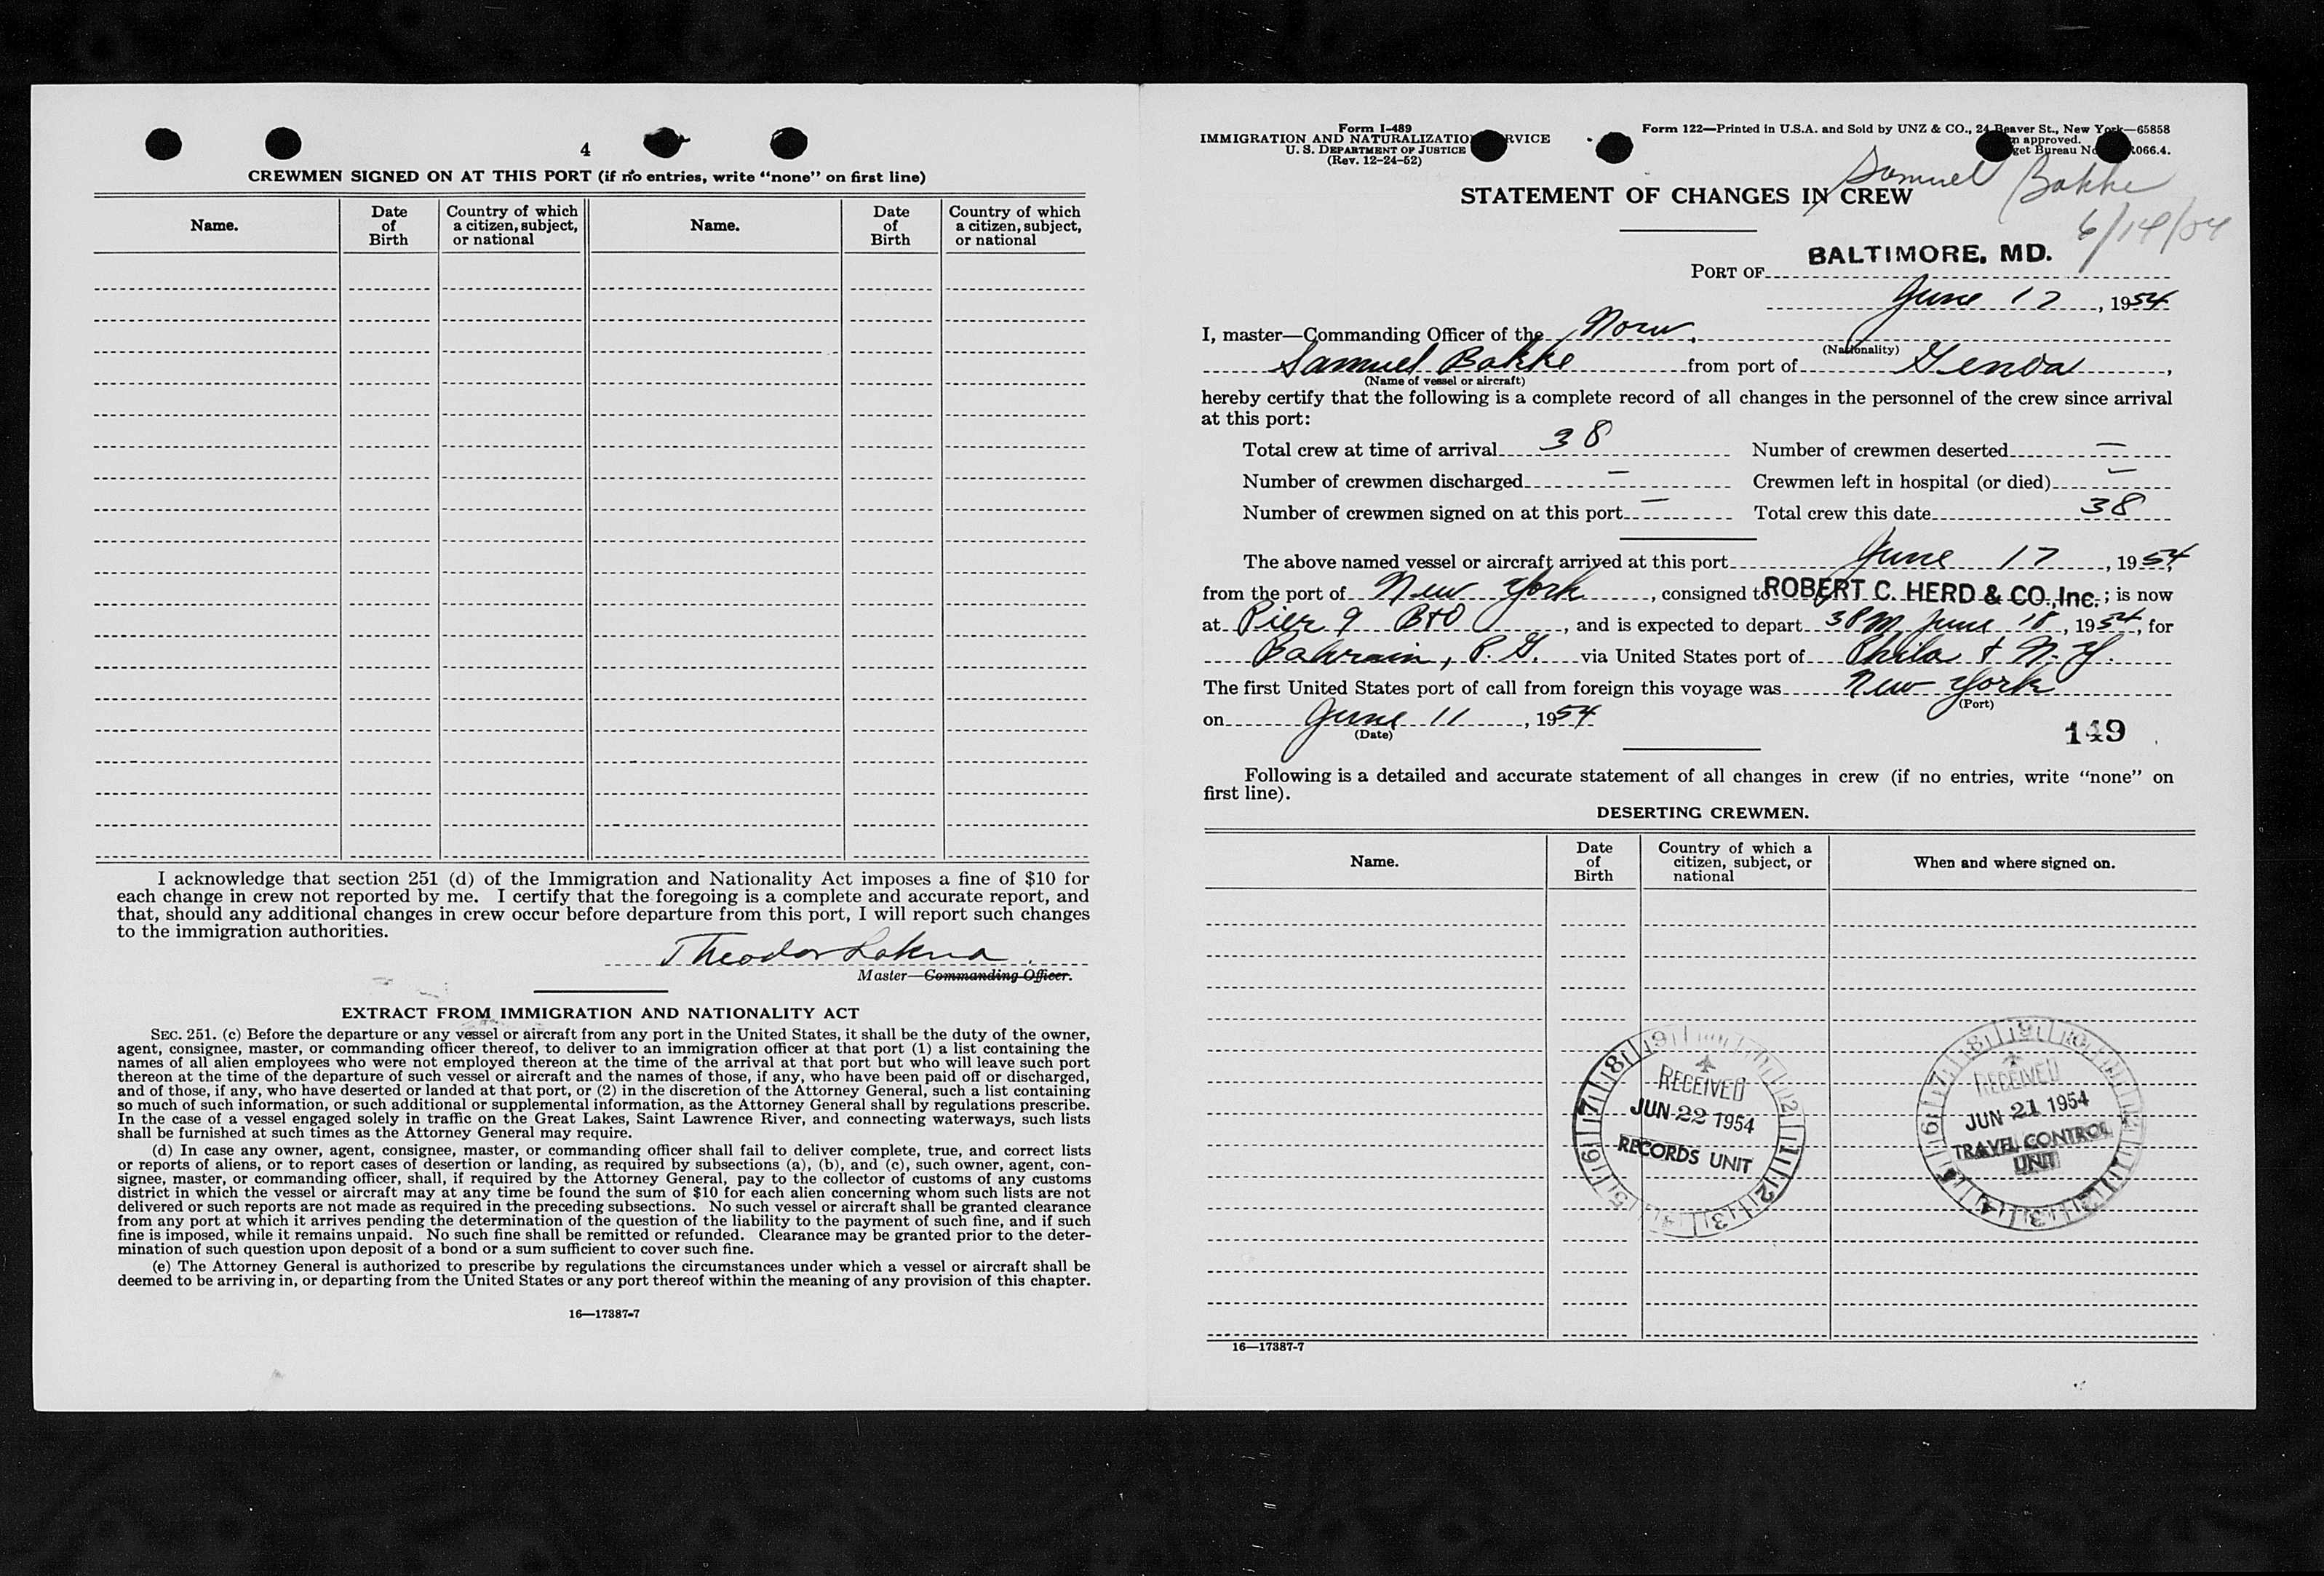 4
CREWMEN SIGNED ON AT THIS PORT (if no entries, write “none” on first line)
Name. Date of Birth Country of which a citizen, subject, or national Name. Date of Birth Country of which a citizen, subject, or national
I acknowledge that section 251 (d) of the Immigration and Nationality Act imposes a fine of $10 for
each change in crew not reported by me. I certify that the foregoing is a complete and accurate report, and
that, should any additional changes in crew occur before departure from this port, I will report such changes
to the immigration authorities.
Theodor
Master—Commanding Officer.
EXTRACT FROM IMMIGRATION AND NATIONALITY ACT
SEC. 251. (c) Before the departure or any vessel or aircraft from any port in the United States, it shall be the duty of the owner,
agent, consignee, master, or commanding officer thereof, to deliver to an immigration officer at that port (1) a list containing the
names of all alien employees who were not employed thereon at the time of the arrival at that port but who will leave such port
thereon at the time of the departure of such vessel or aircraft and the names of those, if any, who have been paid off or discharged,
and of those, if any, who have deserted or landed at that port, or (2) in the discretion of the Attorney General, such a list containing
so much of such information, or such additional or supplemental information, as the Attorney General shall by regulations prescribe.
In the case of a vessel engaged solely in traffic on the Great Lakes, Saint Lawrence River, and connecting waterways, such lists
shall be furnished at such times as the Attorney General may require.
(d) In case any owner, agent, consignee, master, or commanding officer shall fail to deliver complete, true, and correct lists
or reports of aliens, or to report cases of desertion or landing, as required by subsections (a), (b), and (c), such owner, agent, con-
signee, master, or commanding officer, shall, if required by the Attorney General, pay to the collector of customs of any customs
district in which the vessel or aircraft may at any time be found the sum of $10 for each alien concerning whom such lists are not
delivered or such reports are not made as required in the preceding subsections. No such vessel or aircraft shall be granted clearance
from any port at which it arrives pending the determination of the question of the liability to the payment of such fine, and if such
fine is imposed, while it remains unpaid. No such fine shall be remitted or refunded. Clearance may be granted prior to the deter-
mination of such question upon deposit of a bond or a sum sufficient to cover such fine.
(e) The Attorney General is authorized to prescribe by regulations the circumstances under which a vessel or aircraft shall be
deemed to be arriving in, or departing from the United States or any port thereof within the meaning of any provision of this chapter.
16—17387-7
Form I-489
IMMIGRATION AND NATURALIZATIO RVICE
U. S. DEPARTMENT OF JUSTICE
(Rev. 12-24-52)
Form 122—Printed in U.S.A. and Sold by UNZ & CO., 24 Beaver St., New York—65858
approved.
get Bureau No 066.4.
Samuel Bakke
STATEMENT OF CHANGES IN CREW
PORT OF BALTIMORE, MD.
June 17, 1954
I, master—Commanding Officer of the Norw.
(Nationality)
Samuel Bakke from port of Genoa,
(Name of vessel or aircraft)
hereby certify that the following is a complete record of all changes in the personnel of the crew since arrival
at this port:
Total crew at time of arrival 38 Number of crewmen deserted —
Number of crewmen discharged — Crewmen left in hospital (or died) —
Number of crewmen signed on at this port — Total crew this date 38
The above named vessel or aircraft arrived at this port June 17, 1954,
from the port of New York, consigned to ROBERT C. HERD & CO., Inc.; is now
at Pier 9 B+O, and is expected to depart 3PM June 18, 1954, for
Bahrain, P.G. via United States port of Phila + N.Y.
The first United States port of call from foreign this voyage was New York
(Port)
on June 11, 1954
(Date)
149
Following is a detailed and accurate statement of all changes in crew (if no entries, write “none” on
first line).
DESERTING CREWMEN.
Name. Date of Birth Country of which a citizen, subject, or national When and where signed on.
RECEIVED
JUN 22 1954
RECORDS UNIT
RECEIVED
JUN 21 1954
TRAVEL CONTROL
UNIT
16—17387-7